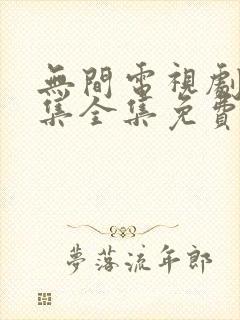 無間電視劇
集全集免費
夢落流年郎